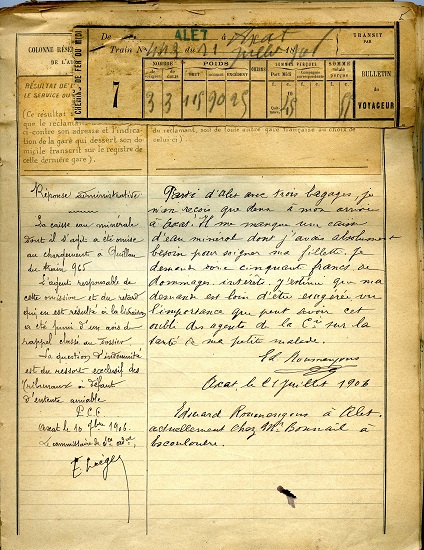 COLONNE RÉSE
DE L'A
RÉSULTAT DE L'
LE SERVICE DU
(Ce résultat
que le réclama
ci-contre son adresse et l'indica-
tion de la gare qui dessert son do-
micile transcrit sur le registre de
cette dernière gare).
CHEMINS DE FER DU MIDI
De ALET à Axat
Train No 443 du 21 juillet 1906
7
NOMBRE
POIDS
BRUT
EXCÉDENT
SOMMES PERÇUES
Part Midi
SOMME
totale
perçue
3 3 115 90 25
TRANSIT
PAR
BULLETIN
du
VOYAGEUR
du réclamant, soit de toute autre gare française au choix de
celui-ci)
Réponse administrative
La caisse eau minérale
dont il s'agit a été omise
au chargement à Quillan
du train 965
L'agent responsable de
cette omission et du retard
qui en est résulté à la livraison
a été puni d'un mois de
rappel classé au dossier.
La question d'indemnité
est du ressort exclusif des
Tribunaux à défaut
d'entente amiable
P.C.C.
Axat le 10 7bre 1906.
Le commissaire de
Parti d'Alet avec trois bagages, je
n'en reçois que deux à mon arrivée
à Axat. Il me manque une caisse
d'eau minéral dont j'avais absolument
besoin pour soigner ma fillette. Je
demande donc cinquant francs de
dommages intérêts. J'estime que ma
demande est loin d'être exagérée vu
l'importance que peut avoir cet
oubli des agents de la Cie sur la
santé de ma petite malade.
Ed Roumengous
Axat le 21 juillet 1906
Edouard Roumengous à Alet
actuellement chez Mr Bonnail à
Escouloubre.